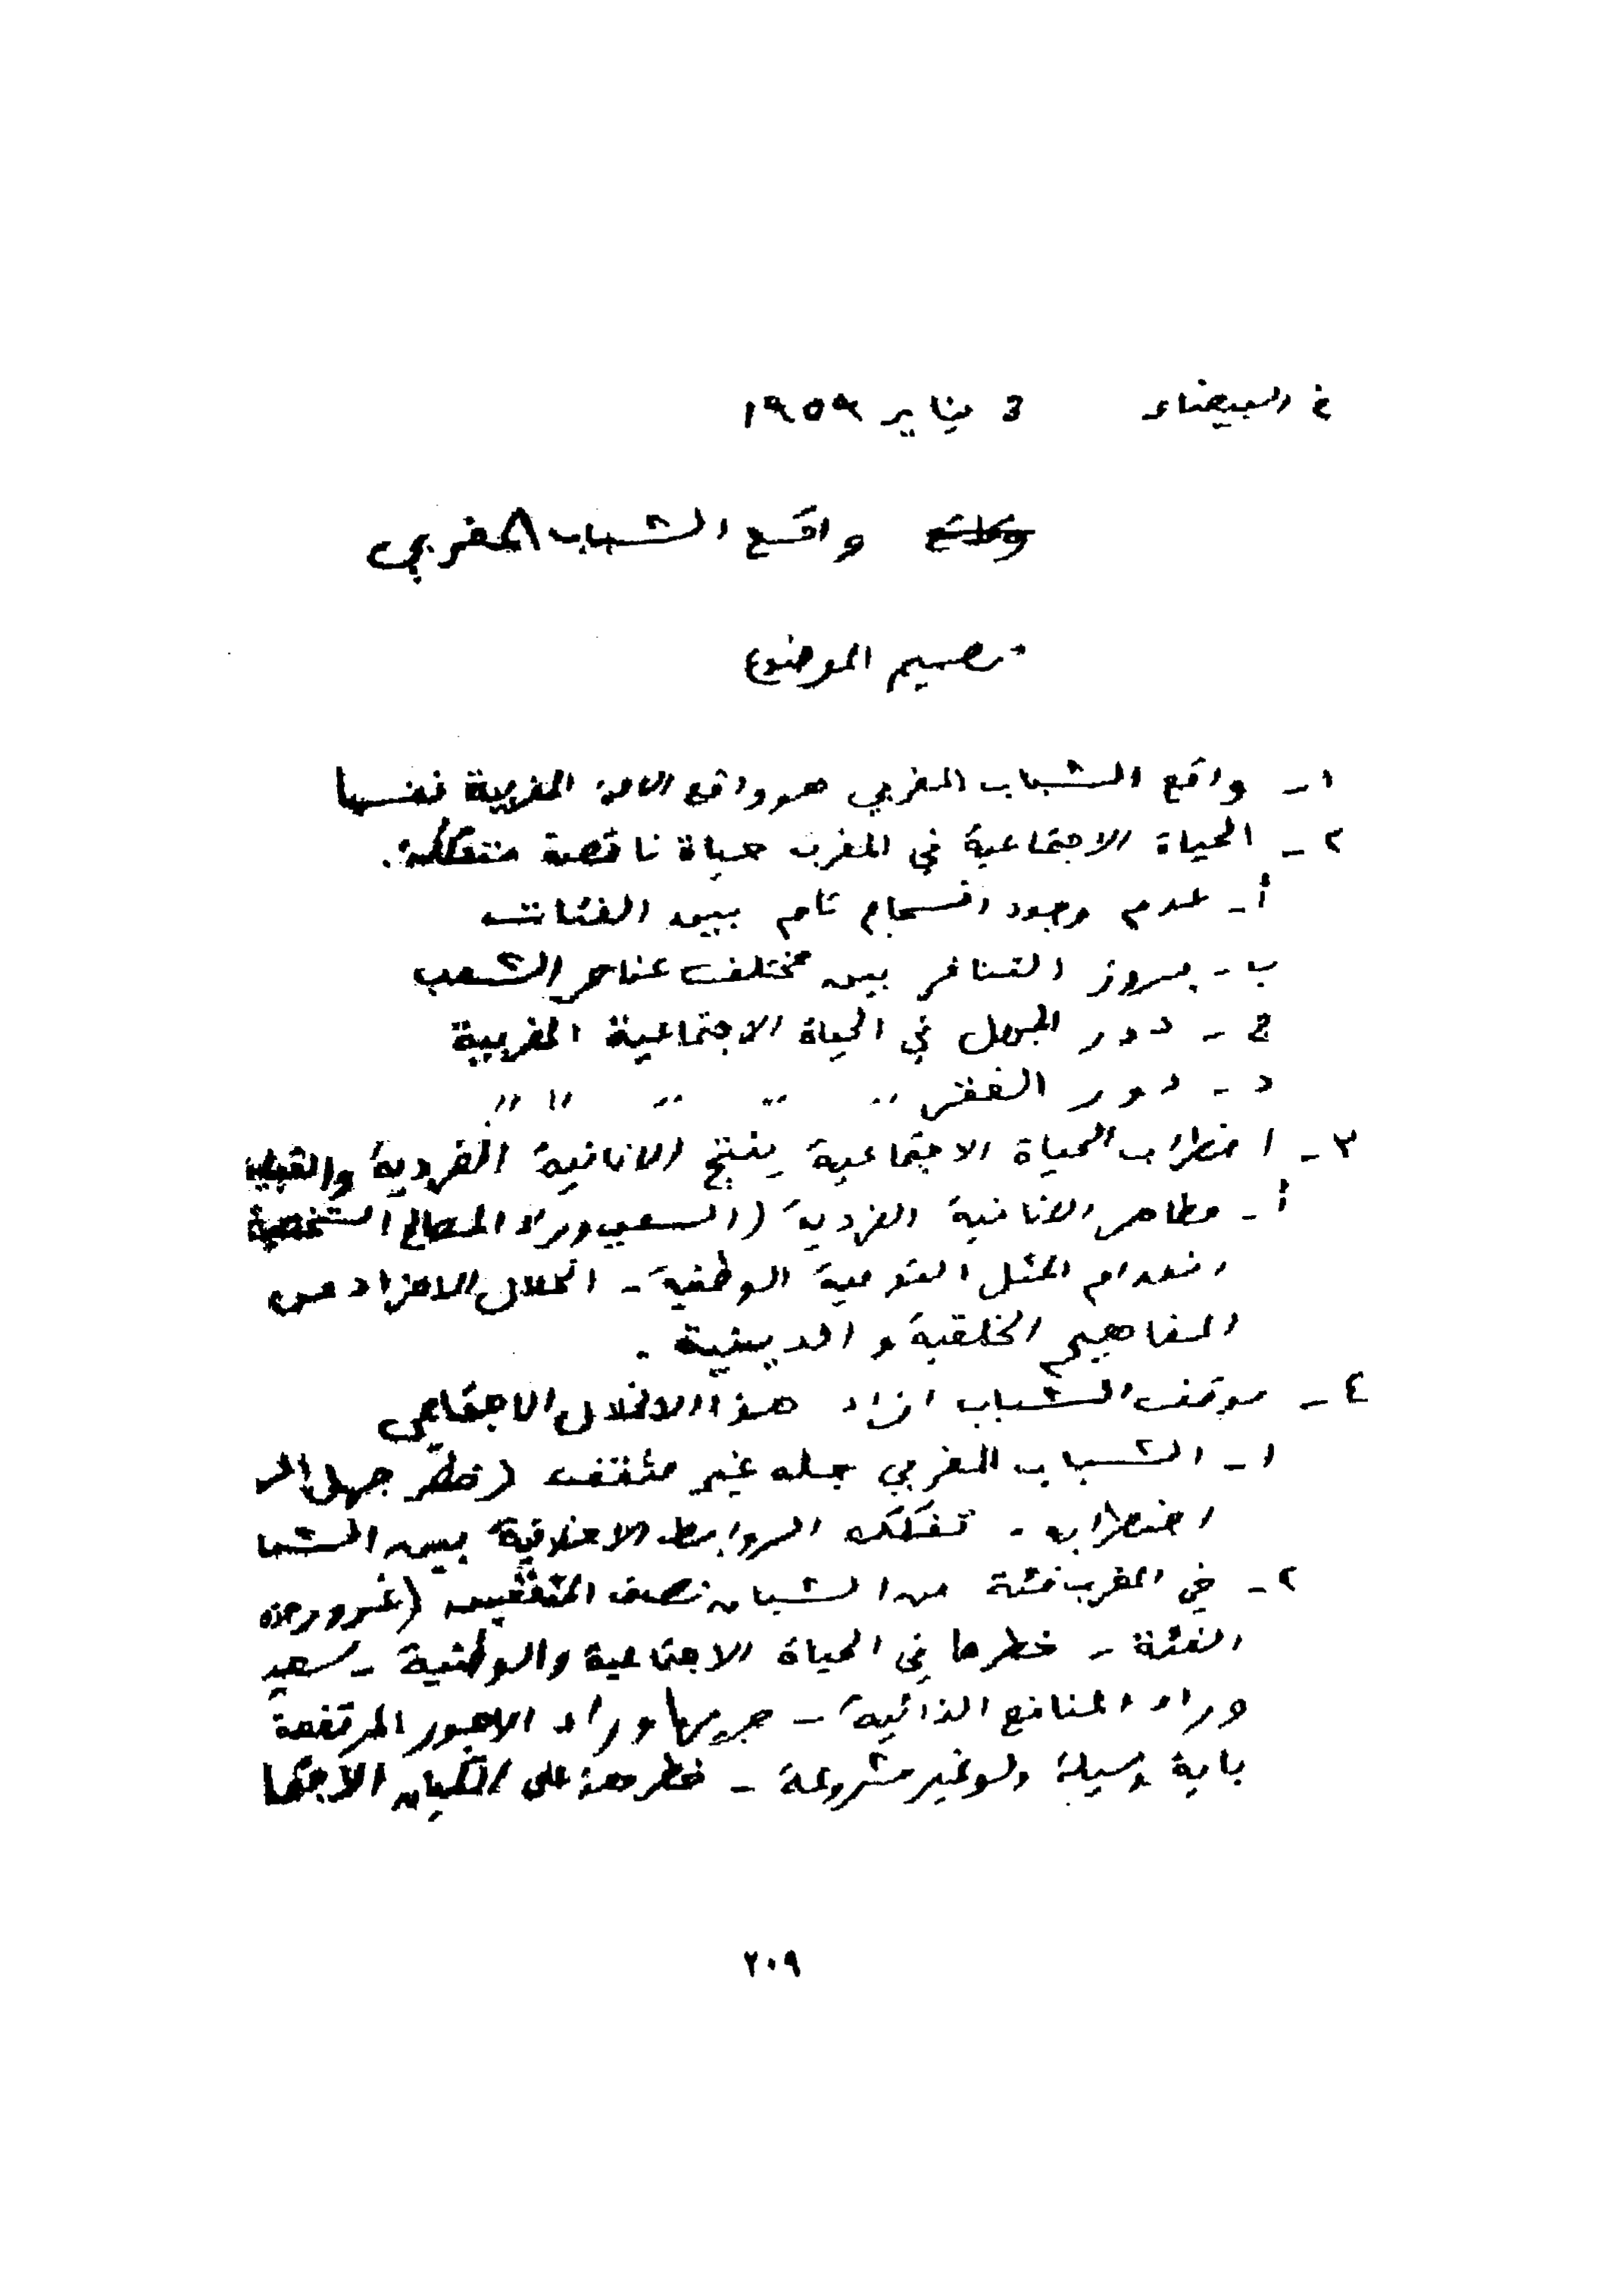 في البيضاء 3 يناير ١٩٥٩
واقع الشباب المغربي
تصميم الموضوع
١ـ واقع الشباب المغربي هو واقع الامة المغربية نفسها
٢ـ الحياة الاجتماعية في المغرب حياة ناقصة متفككة.
أـ عدم وجود انسجام تام بين الفئات
ب ـ بروز التنافر بين مختلف عناصر الشعب
ج ـ دور الجهل في الحياة الاجتماعية المغربية
د ـ دور الفقر ,, ,, ,, ,, ,,
٣ـ اضطراب الحياة الاجتماعية ينتج الانانية الفردية والقبلية
أـ مظاهر الانانية الفردية (السعي وراء المصالح الشخصية
انعدام المثل القومية الوطنية ـ انحلال الافراد من
المفاهيم الخلقية و الدينية .
٤ـ موقف الشباب ازاء هذا الانحلال الاجتماعي
١ـ الشباب المغربي جله غير مثقف (خطر جهل
اضطراب ـ تفكك الروابط الاخلاقية بين الشبا
٢ـ في المغرب فئة من الشبان نصف المثقفين (غرور هذه
الفئة ـ خطرها في الحياة الاجتماعية والوطنية ـ
وراء المنافع الذاتية ـ جريها وراء الاجور المرتفعة
باية وسيلة ولو غير مشروعة ـ على الكيان الاجتما
٢٠٩